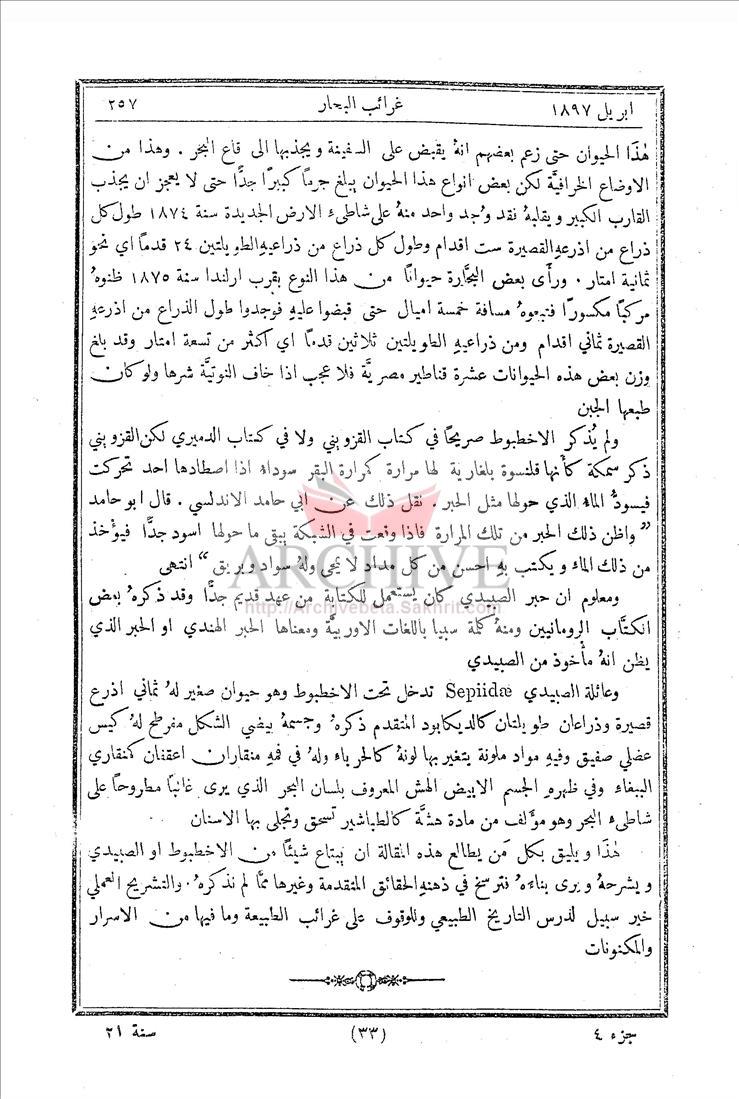 ابريل ١٨٩٧
غرائب البحار
٢٥٧
هٰذا الحيوان حتى زعم بعضهم انهُ يقبض على السفينة ويجذبها الى قاع البحر . وهذا من
الاوضاع الخرافيَّة لكن بعض انواع هذا الحيوان يبلغ جرمًا كبيرًا جدًّا حتى لا يعجز ان يجذب
القارب الكبير ويقلبهُ نقد وُجد واحد منهُ على شاطىءِ الارض الجديدة سنة ١٨٧٤ طول كل
ذراع من اذرعهِ القصيرة ست اقدام وطول كل ذراع من ذراعيهِ الطويلتين ٢٤ قدمًا اي نحو
ثمانية امتار . ورأَى بعض البحَّارة حيوانًا من هذا النوع بقرب ارلندا سنة ١٨٧٥ ظنوهُ
مركبًا مكسورًا فتبعوهُ مسافة خمسة اميال حتى قبضوا عليهِ فوجدوا طول الذراع من اذرعهِ
القصيرة ثماني اقدام ومن ذراعيهِ الطويلتين ثلاثين قدمًا اي اكثر من تسعة امتار وقد بلغ
وزن بعض هذه الحيوانات عشرة قناطير مصريَّة فلا عجب اذا خاف النوتيَّة شرها ولو كان
طبعها الجبن
ولم يُذكر الاخطبوط صريحًا في كتاب القزويني ولا في كتاب الدميري لكن القزويني
ذكر سمكة كأَنها قلنسوة بلغارية لها مرارة كمرارة البقر سوداءُ اذا اصطادها احد تحركت
فيسودُّ الماءُ الذي حولها مثل الحبر . نقل ذلك عن ابي حامد الاندلسي . قال ابو حامد
" واظن ذلك الحبر من تلك المرارة فاذا وقعت في الشبكة يبقى ما حولها اسود جدًّا فيؤْخذ
من ذلك الماءِ ويكتب بهِ احسن من كل مداد لا يمحى ولهُ سواد وبريق " انتهى
ومعلوم ان حبر الصبيدي كان يُستعمل للكتابة من عهد قديم جدًّا وقد ذكرهُ بعض
الكتَّاب الرومانيين ومنهُ كلمة سبيا باللغات الاوربيَّة ومعناها الحبر الهندي او الحبر الذي
يظن انهُ مأْخوذ من الصبيدي
وعائلة الصبيدي Sepiidæ تدخل تحت الاخطبوط وهو حيوان صغير لهُ ثماني اذرع
قصيرة وذراعان طويلتان كالديكابود المتقدم ذكرهُ وجسمهُ بيضي الشكل مفرطح لهُ كيس
عضلي صفيق وفيهِ مواد ملونة يتغير بها لونهُ كالحرباءِ ولهُ في فمهِ منقاران اعقفان كمنقاري
الببغاءِ وفي ظهرهِ الجسم الابيض الهش المعروف بلسان البحر الذي يرى غالبًا مطروحًا على
شاطىءِ البحر وهو مؤَلف من مادة هشَّة كالطباشير تسحق وتجلى بها الاسنان
هٰذا ويليق بكل من يطالع هذه المقالة ان يبتاع شيئًا من الاخطبوط او الصبيدي
ويشرحهُ ويرى بناءَهُ فترسخ في ذهنهِ الحقائق المتقدمة وغيرها ممَّا لم نذكرهُ . والتشريح العملي
خير سبيل لدرس التاريخ الطبيعي وللوقوف على غرائب الطبيعة وما فيها من الاسرار
والمكنونات
جزء ٤
(٣٣)
سنة ٢١
ARCHIVE
http://Archivebeta.Sakhrit.com